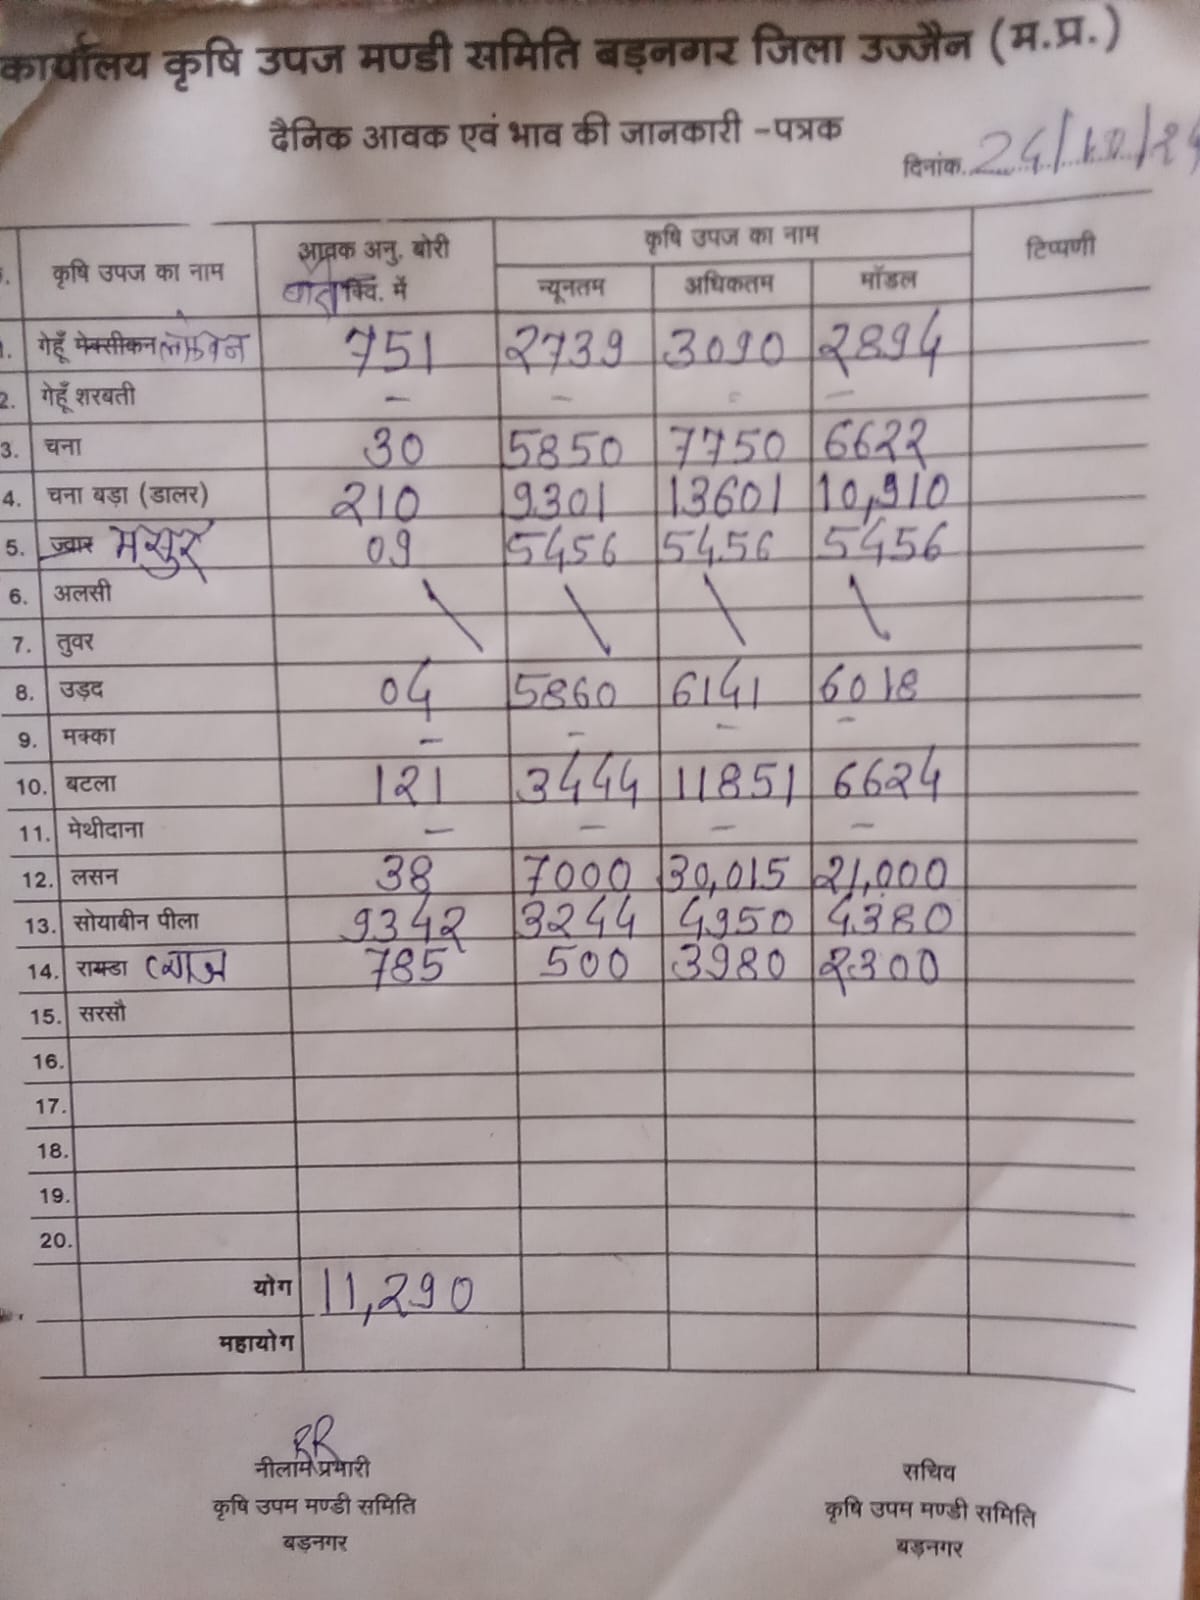 कार्यालय कृषि उपज मण्डी समिति बड़नगर जिला उज्जैन (म.प्र.)
दैनिक आवक एवं भाव की जानकारी -पत्रक
दिनांक. 24/10/24
कृषि उपज का नाम आवक अनु. बोरी क्वि. में कृषि उपज का नाम टिप्पणी
न्यूनतम अधिकतम मॉडल
1. गेहूँ मेक्सीकन लोकवन 751 2739 3090 2894
2. गेहूँ शरबती - - - -
3. चना 30 5850 7750 6622
4. चना बड़ा (डालर) 210 9301 13601 10,910
5. ज्वार मसुर 09 5456 5456 5456
6. अलसी
7. तुवर
8. उड़द 04 5860 6141 6018
9. मक्का - - - -
10. बटला 121 3444 11851 6624
11. मेथीदाना - - - -
12. लसन 38 7000 30,015 21,000
13. सोयाबीन पीला 9342 3244 4950 4380
14. रायडा प्याज 785 500 3980 2300
15. सरसौ
16.
17.
18.
19.
20.
योग 11,290
महायोग
RR
नीलाम प्रभारी सचिव
कृषि उपम मण्डी समिति कृषि उपम मण्डी समिति
बड़नगर बड़नगर